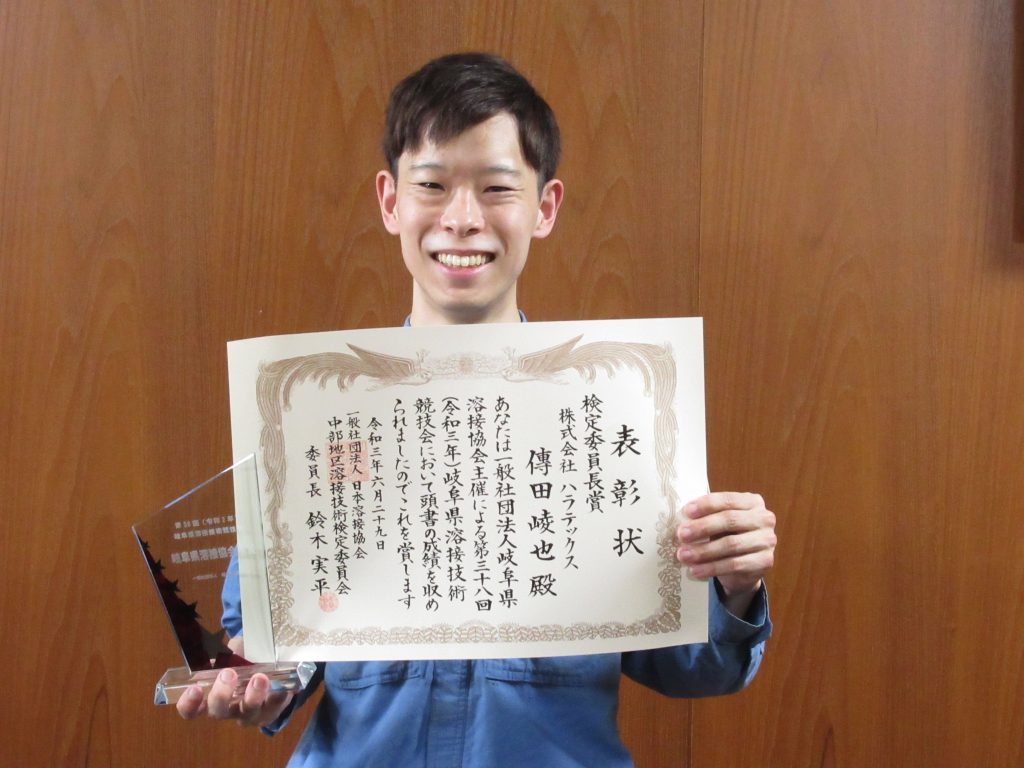 表彰状
検定委員長賞
株式会社 ハラテックス
傳田崚也殿
あなたは一般社団法人岐阜県
溶接協会主催による第三八回
(令和三年)岐阜県溶接技術
競技会において頭書の成績を収め
られましたのでこれを賞します
令和三年六月二十九日
一般社団法人日本溶接協会
中部地区溶接技術検定委員会
委員長 鈴木実平
岐阜県溶接協会